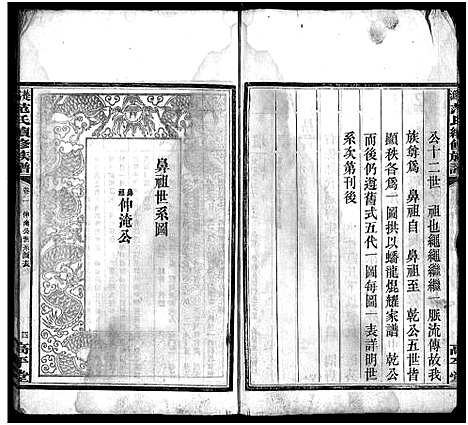 公十二世　祖也繩繩繼繼一脈流傳故我
族尊爲　鼻祖自　鼻祖至　乾公五世皆
顯秩各爲一圖拱以蟠龍焜耀家譜　乾公
而後仍遵舊式五代一圖每圖一表詳明世
系次第刊後
鼻祖世系圖
鼻祖
仲淹公
范氏續修族譜
卷一
四
高平堂